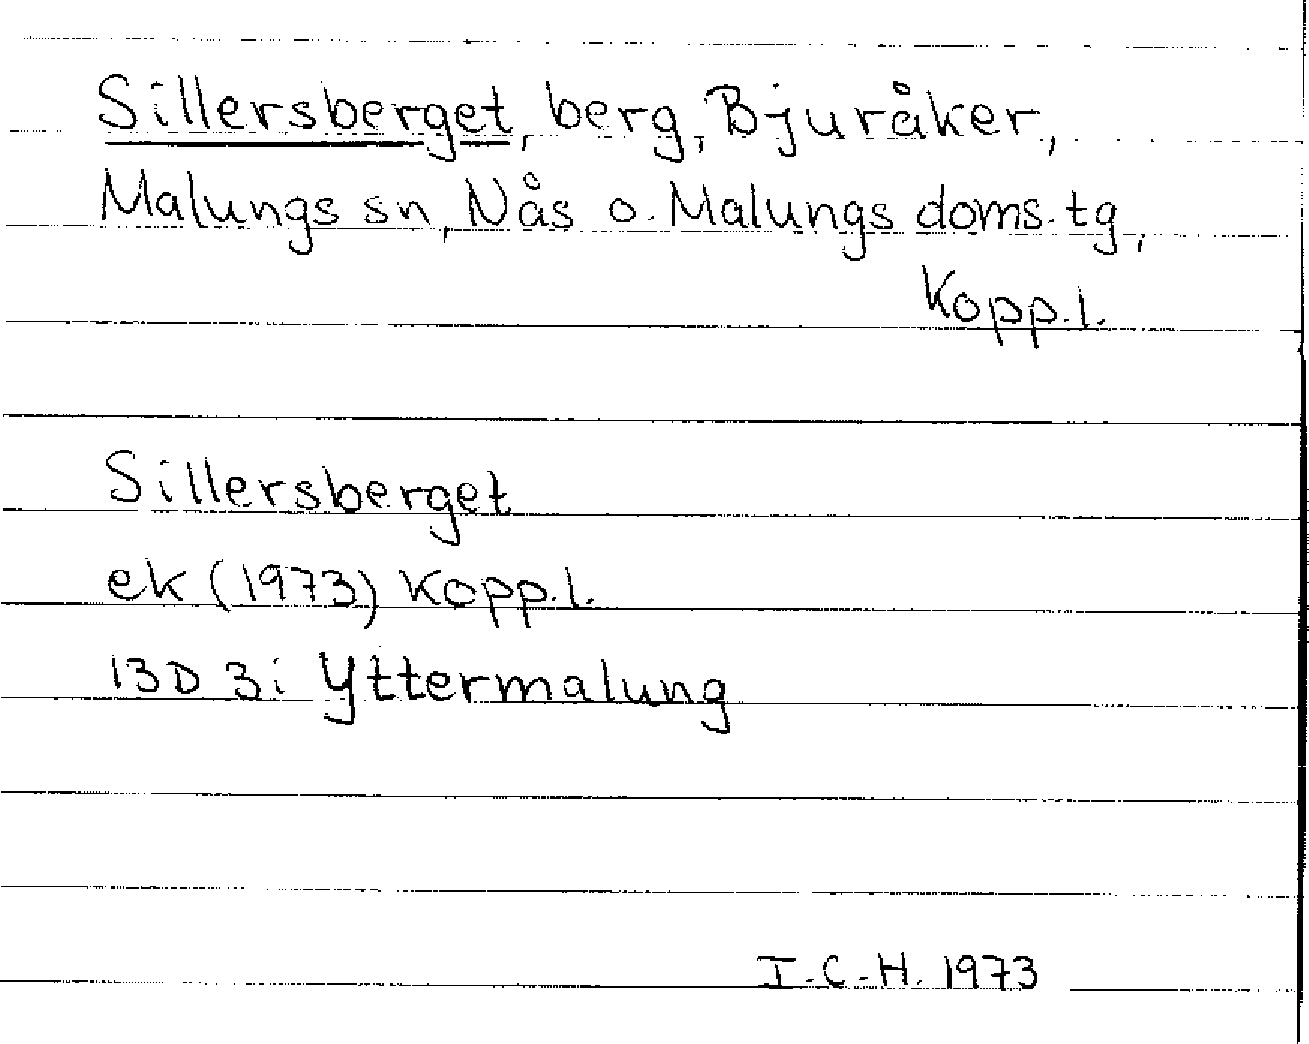 Sillersberget, berg, Bjuråker,
Malungs sn, Nås o. Malungs doms.tg,
Kopp.l.
Sillersberget
ek (1973) Kopp.l.
13D 3i Yttermalung
I.C-H. 1973